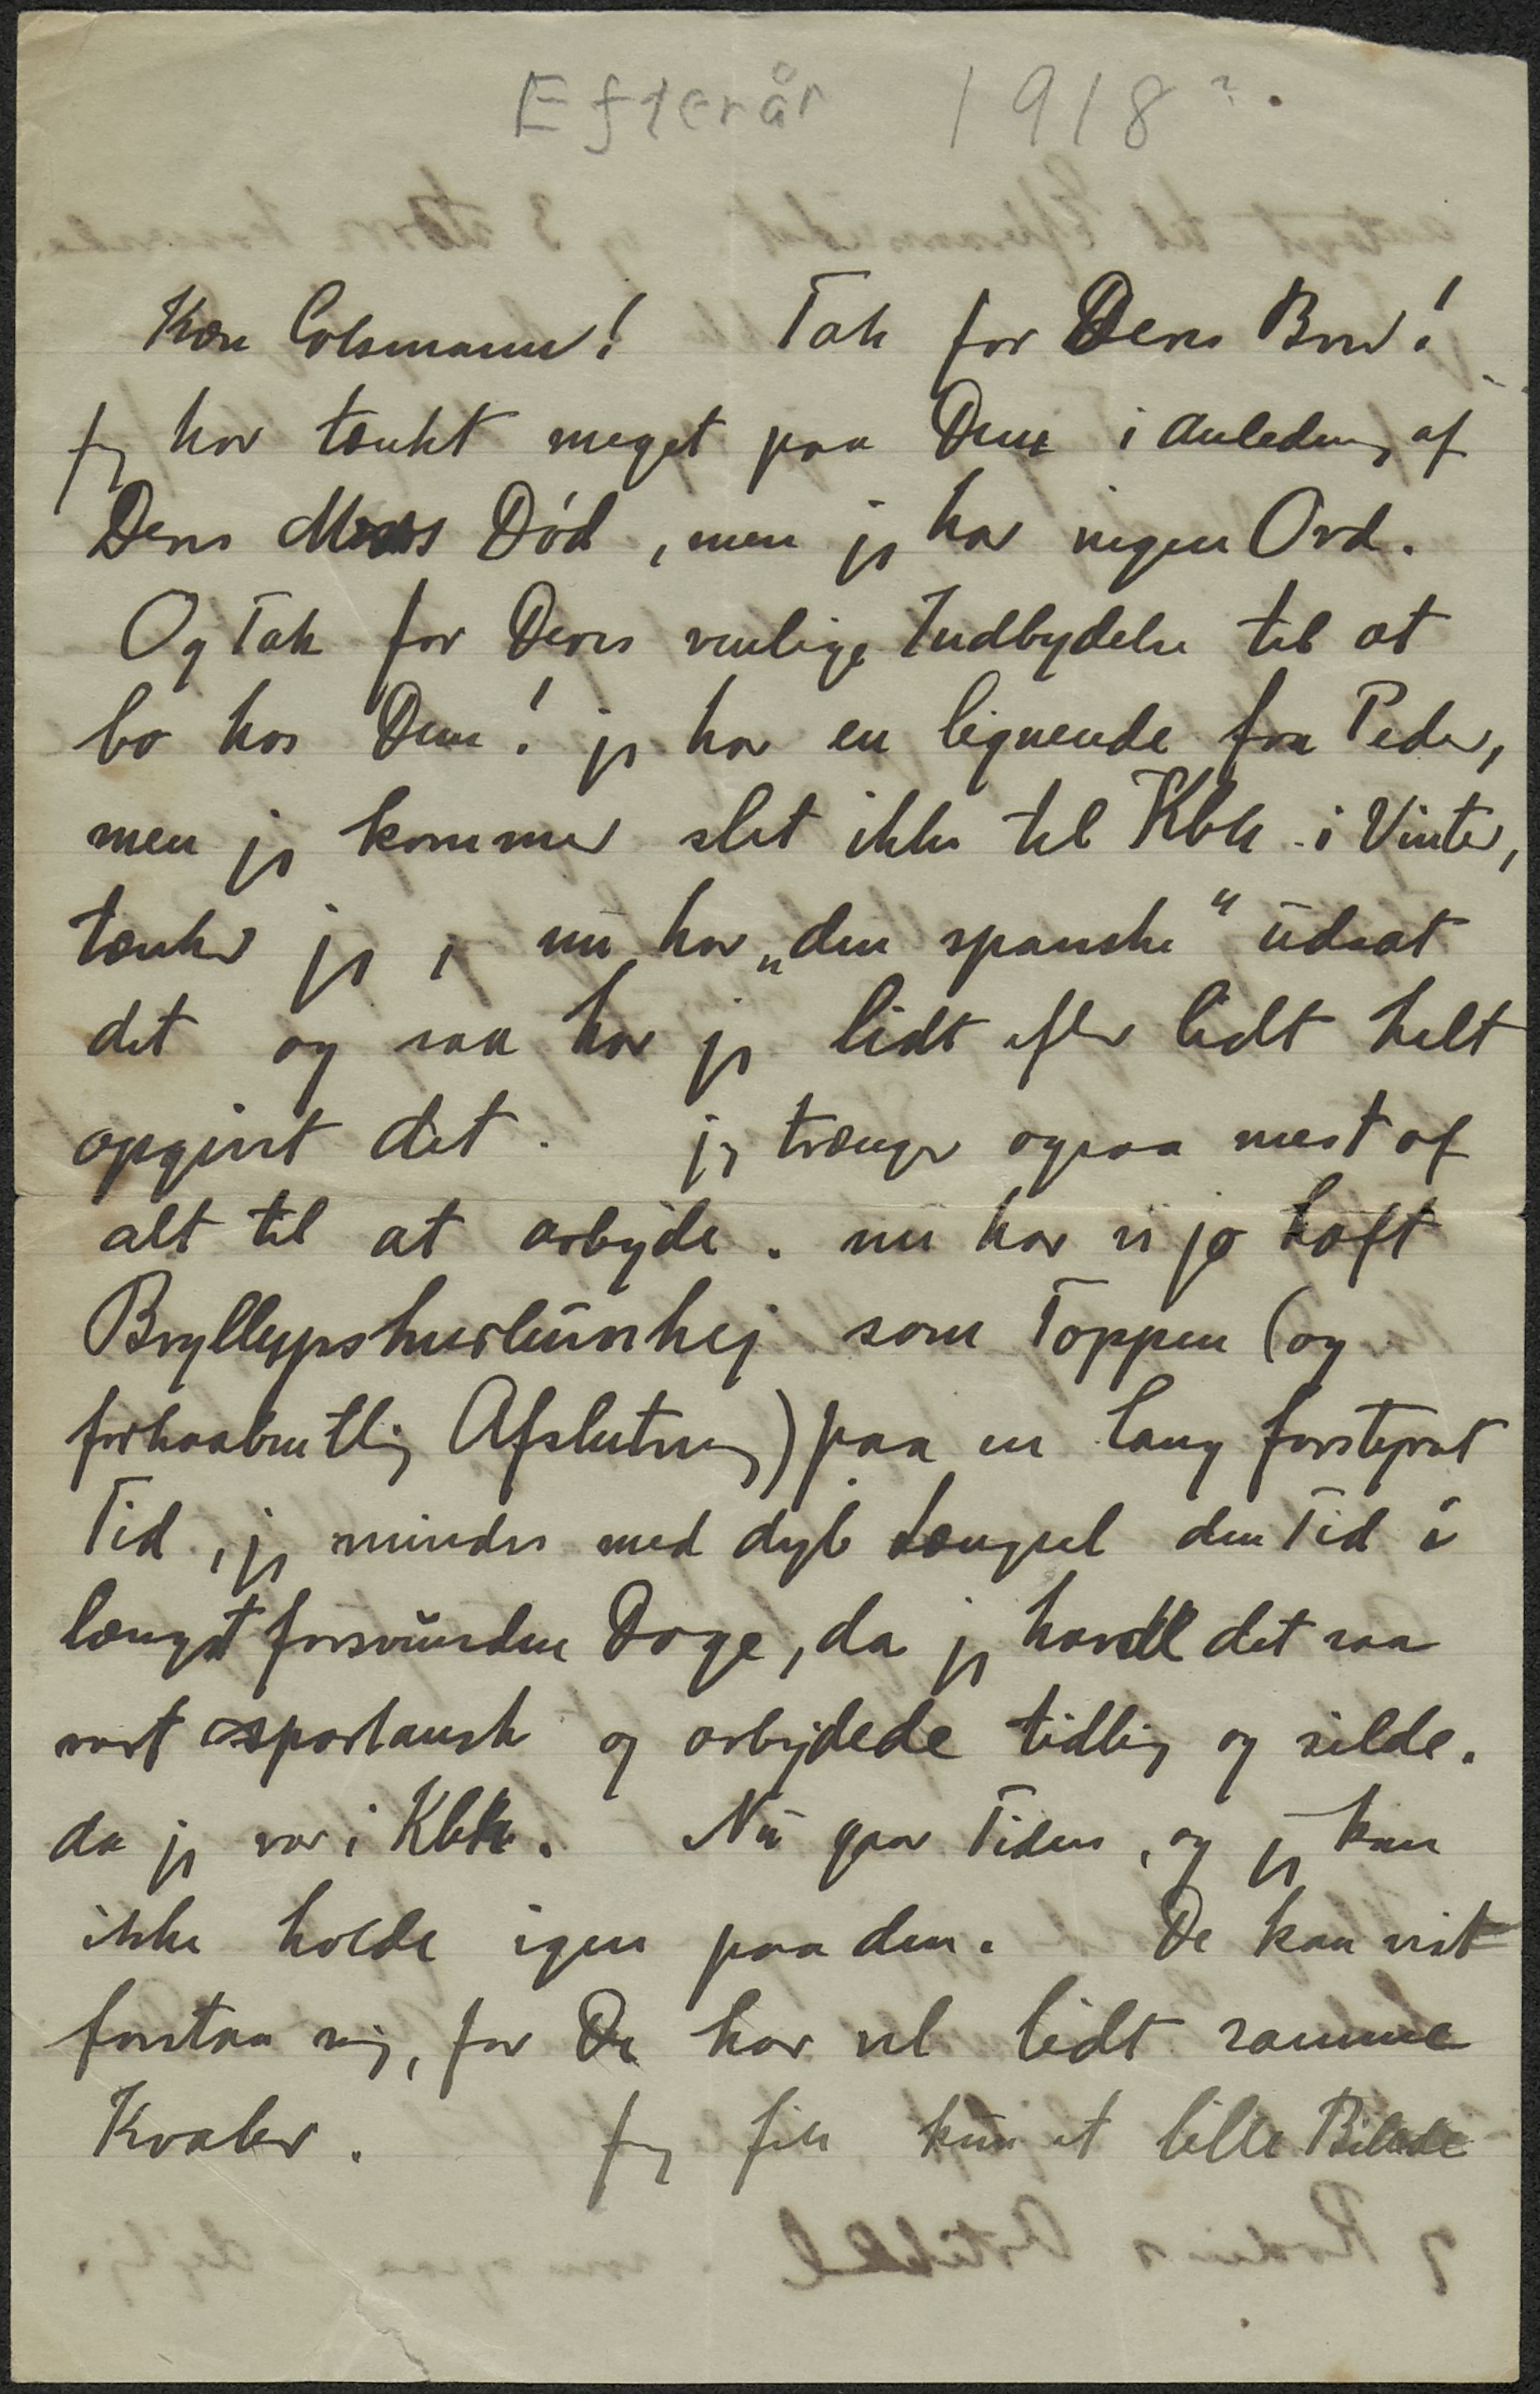 Efterår 1918?.
Kære Colsmann! Tak for Deres Brev!
Jeg har tænkt meget paa Dem i Anledning af
Deres Mors Død, men jeg har ingen Ord.
Og Tak for Deres venlige Indbydelse til at
bo hos Dem! jeg har en lignende fra Peder,
men jeg kommer slet ikke til Kbh i Vinter,
tænker jeg, nu har „den spanske“ udsat
det og saa har jeg lidt efter lidt helt
opgivet det. jeg trænger ogsaa mest af
alt til at arbejde. nu har vi jo haft
Bryllupshurlumhej som Toppen (og
forhaabentlig Afslutning) paa en lang forstyrret
Tid, jeg mindes med dyb Længsel den Tid i
længst forsvundne Dage, da jeg havde det saa
rart spartansk og arbejdede tidlig og silde.
da jeg var i Kbh. Nu gaar Tiden, og jeg kan
ikke holde igen paa den. De kan vist
forstaa mig, for De har vel lidt samme
Kvaler. Jeg fik kun et lille Billede